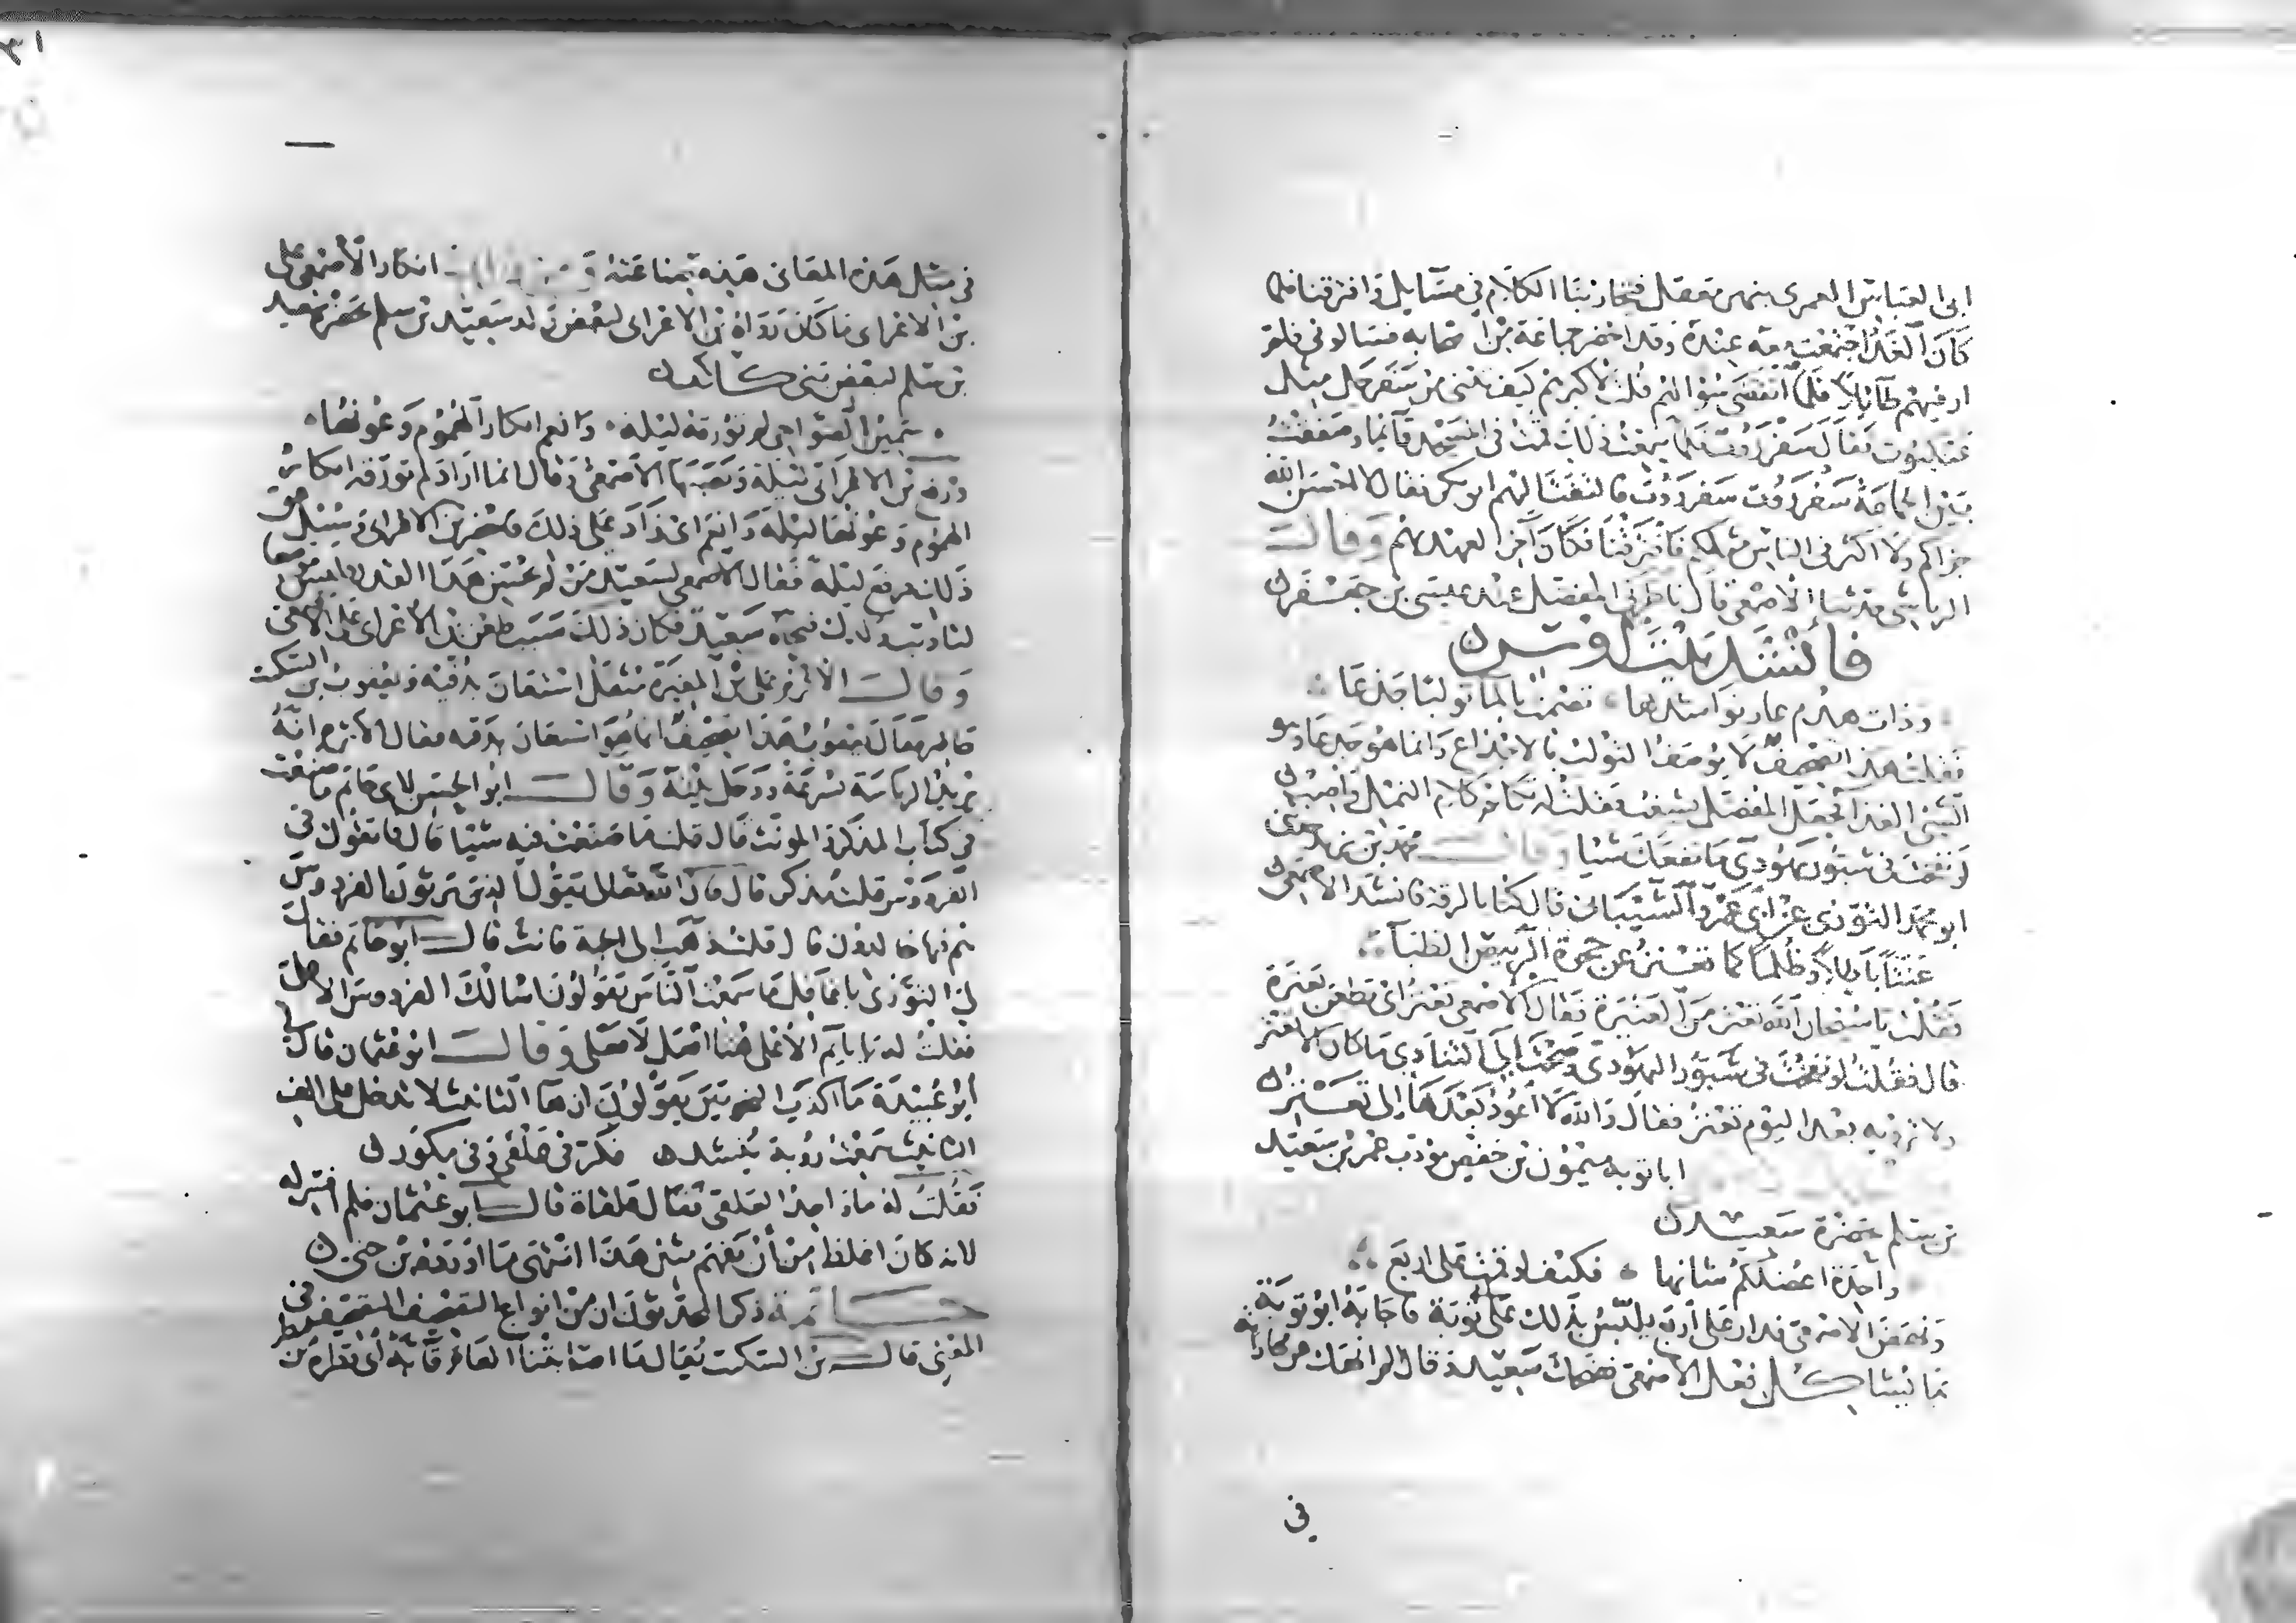 ابى العباس العمرى بنهر معقل فتجارينا الكلام فى مسايل وافترقنا فلما
كان الغد اجتمعت معه عنده وقد احضر جماعة من اصحابه فسالونى فلم
ار فيهم طايلا فلما انقضى سؤالهم قلت لاكبرهم كيف تبنى من سفرجل مثل
عنكبوت فقال سفرروت فلما سمعت ذلك قمت فى المسجد قايما وصفقت
بين الجماعة سفرروت سفرروت فالتفت اليهم ابو بكر فقال لا احسن الله
جزاكم ولا اكثر فى الناس مثلكم فافترقنا فكان اخر العهد بهم وقال
الرياشى حدثنا الاصمعى قال ناظرنى المفضل عند عيسى بن جعفر
فانشد بيت اوس
وذات هدم عار نواشرها تصمت بالما تولبا جذعا
فقلت هذا تصحيف لا يوصف التولب بالاجذاع وانما هو جدعا وهو
السيئ الغذا فجعل المفضل يشغب فقلت له تكلم كلام النمل واصب
لو نفخت فى شبور يهودى ما نفعك شيا وقال محمد بن يزيد حدثنى
ابو محمد التوزى عن ابى عمرو الشيبانى قال كنا بالرقة فانشد الاصمعى
عننا باطلا وظلما كما تعنز عن حجرة الربيض الظبا
فقلت يا سبحان الله تعتر من العتيرة فقال الاصمعى تعنز اى تطعن بعنزة
قال فقلت لو نفخت فى شبور اليهودى وصحت الى التنادى ما كان الا تعتر
ولا ترويه بعد اليوم تعنز فقال والله لا اعود بعدها الى تعنز
ابا توبة ميمون بن حفص مؤدب عمر بن سعيد
بن سلم بحضرة سعيد
واحدة اعضلكم شانها فكيف لو قمت على اربع
ونهض الاصمعى فدار على اربع يلبس بذلك على توبة فاجابه ابو توبة
بما يشاكل فعل الاصمعى فضحك سعيد وقال الم انهك عن مجاراته
فى
فى مثل هذه المعانى هذه صناعته انكار الاصمعى على
بن الاعرابى ما كان رواه بن الاعرابى لبعض ولد سعيد بن سلم بحضرة سعيد
بن سلم لبعض بنى كلاب
سمين الضواحى لم تؤرقه ليلة وانعم ابكار الهموم وعونها
ورفع بن الاعرابى ليلة ونصبها الاصمعى وقال انما اراد لم تؤرقه ابكار
الهموم وعونها ليلة وانعم اى زاد على ذلك فاحضر بن الاعرابى وسئل عن
ذلك فرفع ليلة فقال الاصمعى لسعيد من لم يحسن هذا القدر فليس
لتاديب ولدك فنحاه سعيد فكان ذلك سبب طعن بن الاعرابى على الاصمعى
وقال الاثرم على بن المغيرة مثقل استعان بذقنه ويعقوب بن السكيت
حاضر فقال يعقوب هذا تصحيف انما هو استعان بدفيه فقال الاثرم انه
يريد الرياسة بسرعة ودخل بيته وقال ابو الحسن لابى حاتم ما صنعت
فى كتاب المذكر والمونث قال قلت قد صنعت فيه شيا قال فما تقول فى
الفردوس قلت مذكر قال فان الله تعالى يقول الذين يرثون الفردوس
هم فيها خالدون قال قلت ذهب الى الجنة فانث قال ابو حاتم فقال
لى التوزى يا غافل ما سمعت الناس يقولون اسالك الفردوس الاعلى
فقلت له يا نايم الاعلى هنا افعل لا فعلى وقال ابو عثمان قال لى
ابو عبيدة ما اكذب النحويين يقولون ان ها التانيث لا تدخل على الف
التانيث سمعت رؤبة ينشد فكر فى علقى وفى مكور
فقلت له ما واحد العلقى فقال علقاة قال ابو عثمان فلم افسر له
لانه كان اغلظ من ان يفهم مثل هذا انتهى ما اورده بن جنى
خاتمة ذكر المحدثون ان من انواع التصحيف التصحيف فى
المعنى قال بن السكيت يقال ما اصابتنا العام قابة اى قطرة من مطر